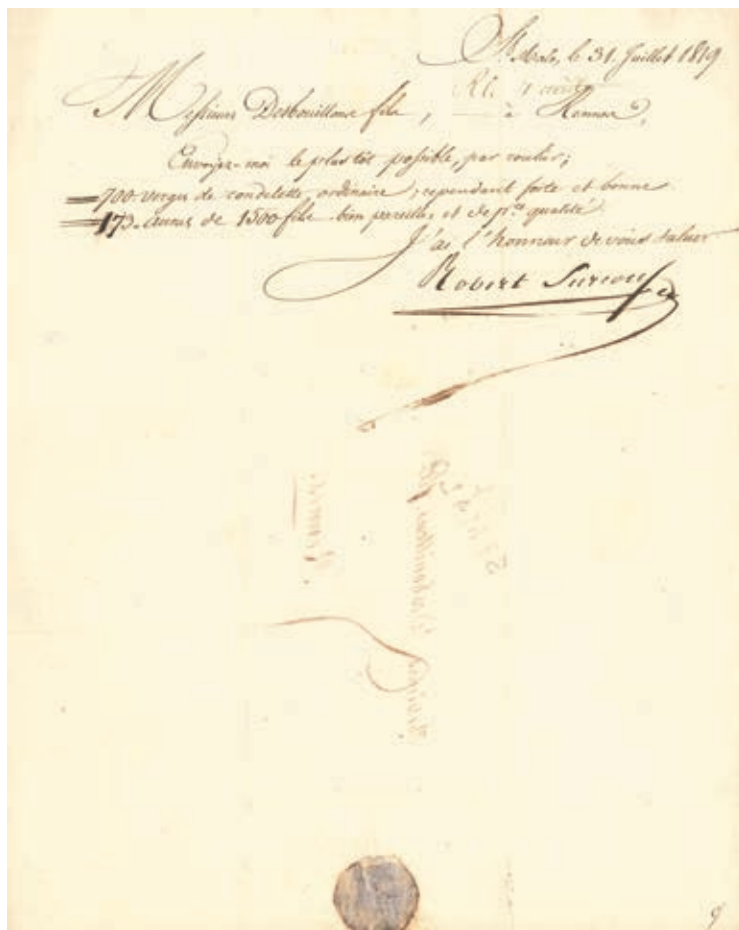 St. Malo, le 31. Juillet 1819
Messieurs Desbouillons fils, à Rennes,
Envoyez-moi le plus tôt possible, par roulier;
700 verges de rondelette, ordinaire, cependant forte et bonne
173. aunes de 1500 fils bien pareilles et de p.re qualité
J'ai l'honneur de vous saluer
Robert Surcouf